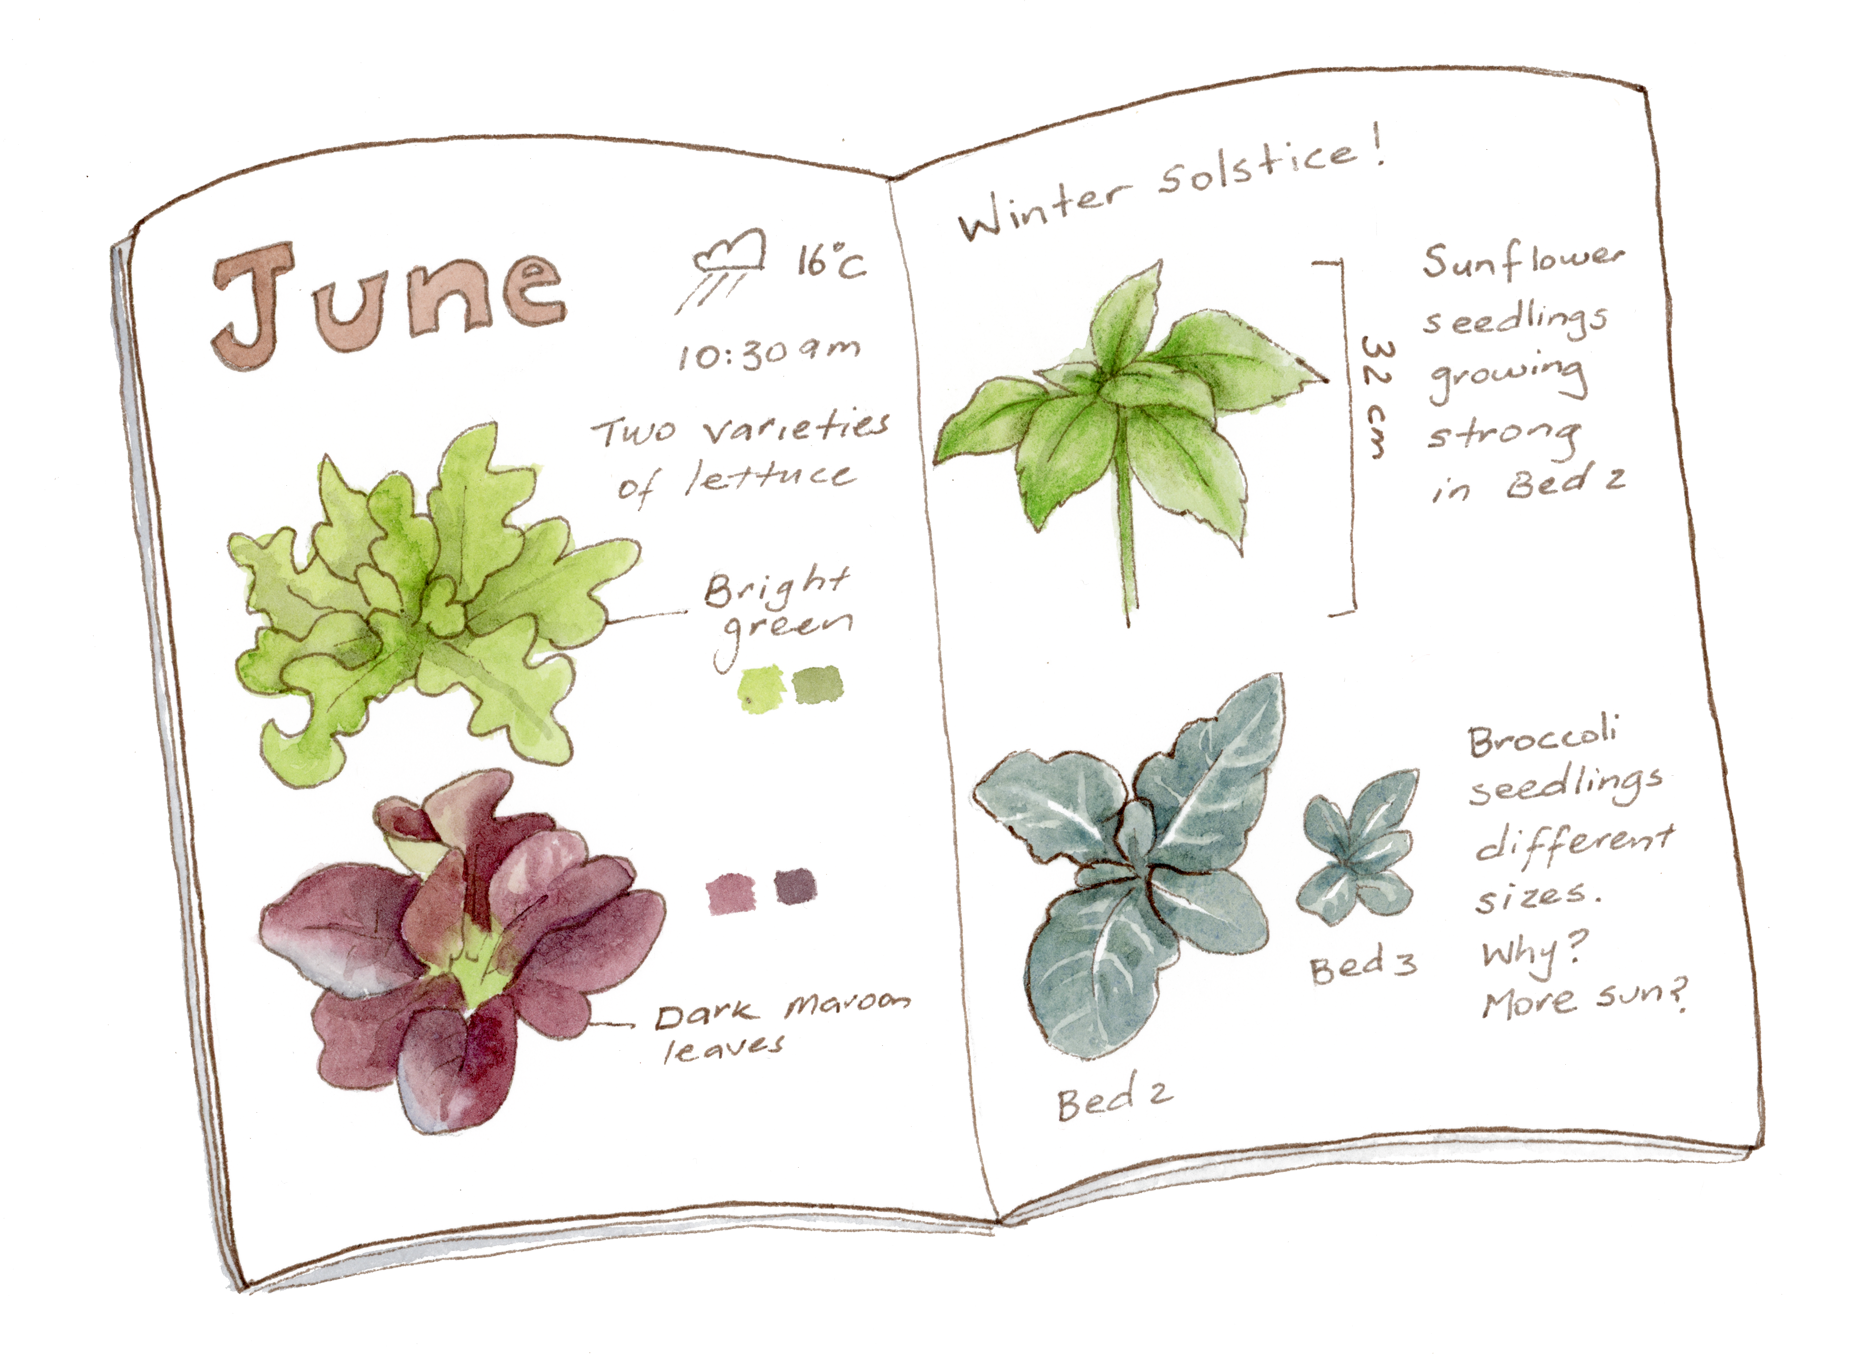 June
16°C
10:30am
Two varieties
of lettuce
Bright
green
Dark maroon
leaves
Winter Solstice!
Sunflower
seedlings
growing
strong
in Bed 2
32 cm
Broccoli
seedlings
different
sizes.
Why?
More sun?
Bed 3
Bed 2